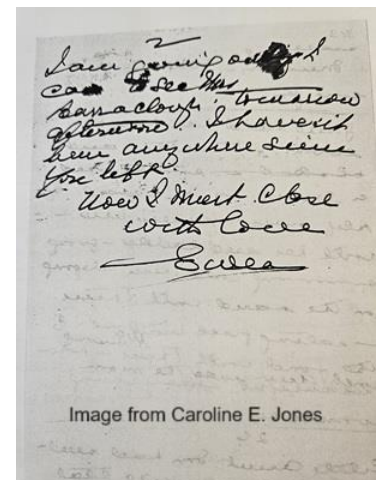 2
I am going out if I
can to see Mrs
Barraclough, tomorrow
afternoon. I haven't
been anywhere since
you left.
Now I must close
with love
Image from Caroline E. Jones